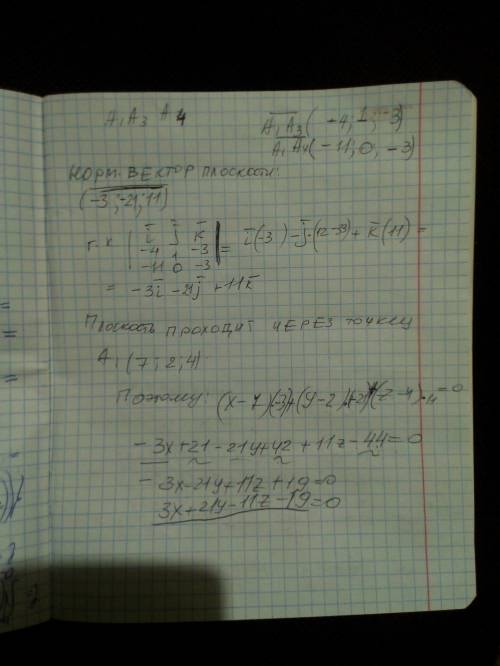 A₁A₃ A4
A₁A₃(-4; 1; -3)
A₁A₄(-11; 0; -3)
НОРМ. ВЕКТОР ПЛОСКОСТИ:
(-3; -21; 11)
т.к | i j k |
| -4 1 -3 | = i(-3) - j·(12-33) + k(11) =
| -11 0 -3 |
= -3i - 21j + 11k
Плоскость проходит через точку
A₁(7; 2; 4)
Поэтому: (x-7)(-3)+(y-2)·(-21)+(z-4)·11=0
-3x+21-21y+42+11z-44=0
-3x-21y+11z+19=0
3x+21y-11z-19=0